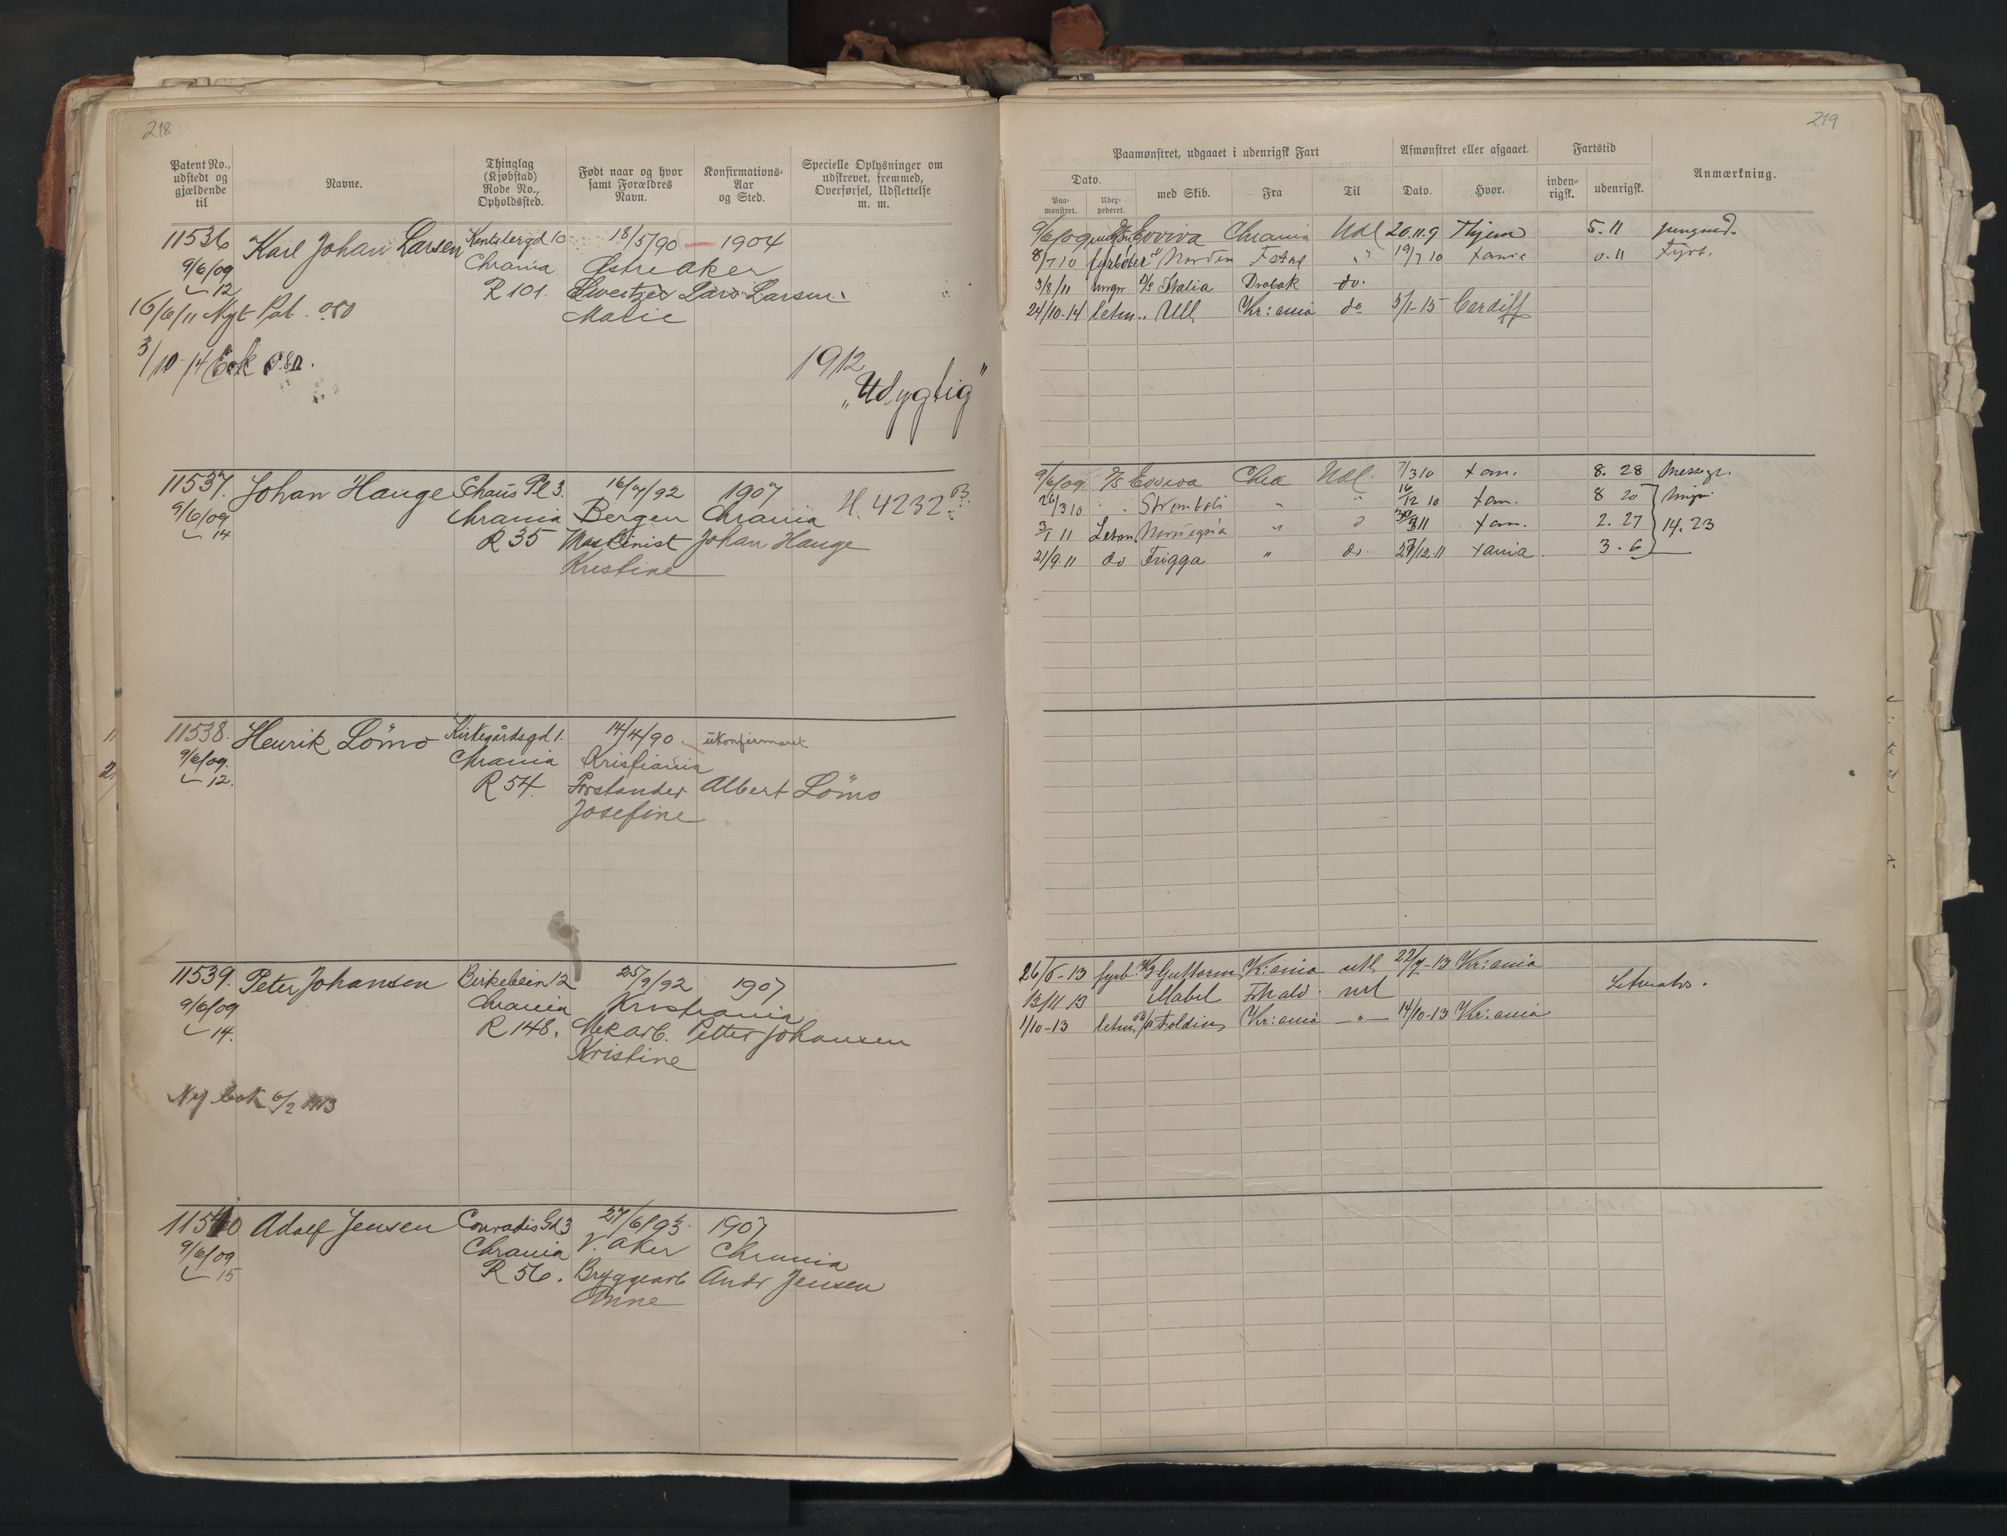 218
Patent No., udstedt og gjældende til
Navne.
Thinglag (Kjøbstad) Rode No., Opholdssted.
Født naar og hvor samt Forældres Navn.
Konfirmations-Aar og Sted.
Specielle Oplysninger om udskrevet, fremmed, Overførsel, Udslettelse m. m.
11536 Karl Johan Larsen 18/5/90 1904
9/6/09 Chrania Østre Aker
12 R 101. Lars Larsen
16/6/11 Nyt Pat.
3/10-14
1912
„Udygtig"
11537. Johan Hauge Schaus Pl 3. 16/7/92 1907 H. 4232
9/6/09 Chrania Bergen Chrania
14 R 35 Maskinist Johan Hauge
Kristine
11538. Henrik Lömo Kirkegårdsgd 1. 14/4/90 ukonfirmeret
9/6/09. Chrania Kristiania
12. R 54. Forstander Albert Lömo
Josefine
11539. Peter Johansen Birkebein 12 25/9/92 1907
9/6/09 Chrania Kristiania
14. R 148. Mek arb. Petter Johansen
Kristine
Ny bok 6/2 1913
11540 Adolf Jensen Conradis Gd 3 27/6/93. 1907
9/6/09 Chrania V. Aker Chrania
15 R 56. Bryggearb Andr Jensen
Anne
219
Paamønstret, udgaaet i udenrigsk Fart
Afmønstret eller afgaaet.
Fartstid
Anmærkning.
Dato.
Paa-mønstret.
Udex-pederet.
med Skib.
Fra
Til
Dato.
Hvor.
inden-rigsk.
udenrigsk.
9/6/09 Evviva Chrania Udl 20.11.9 Hjem 5. 11 jungmd.
8/7 10 fyrbøter Norden 19/7 10 xania 0. 11 Fyrb.
3/8/11 ungr D/S Italia Drøbak do.
24/10-14 letm. Ull Kr:ania do 5/1-15 Cardiff
9/6/09. D/S Evviva Chra Udl. 7/3 10 xan. 8. 28 Messegt.
26/3 10 Stromboli " " 16/12 10 xan. 8 25
3/1 11 Letm. Norvegia " 30/3 11 xan. 2. 27 14. 23
21/9.11 do Frigga " do. 27/12.11 xania. 3. 6
26/5-13 fyrb. Guttorm Kr:ania utl 22/7-13 Kr:ania
13/11 13 Mabel Frhald. utl Letmatr.
1/10-13 letm. Foldin Kr:ania —"— 14/10-13 Kr:ania